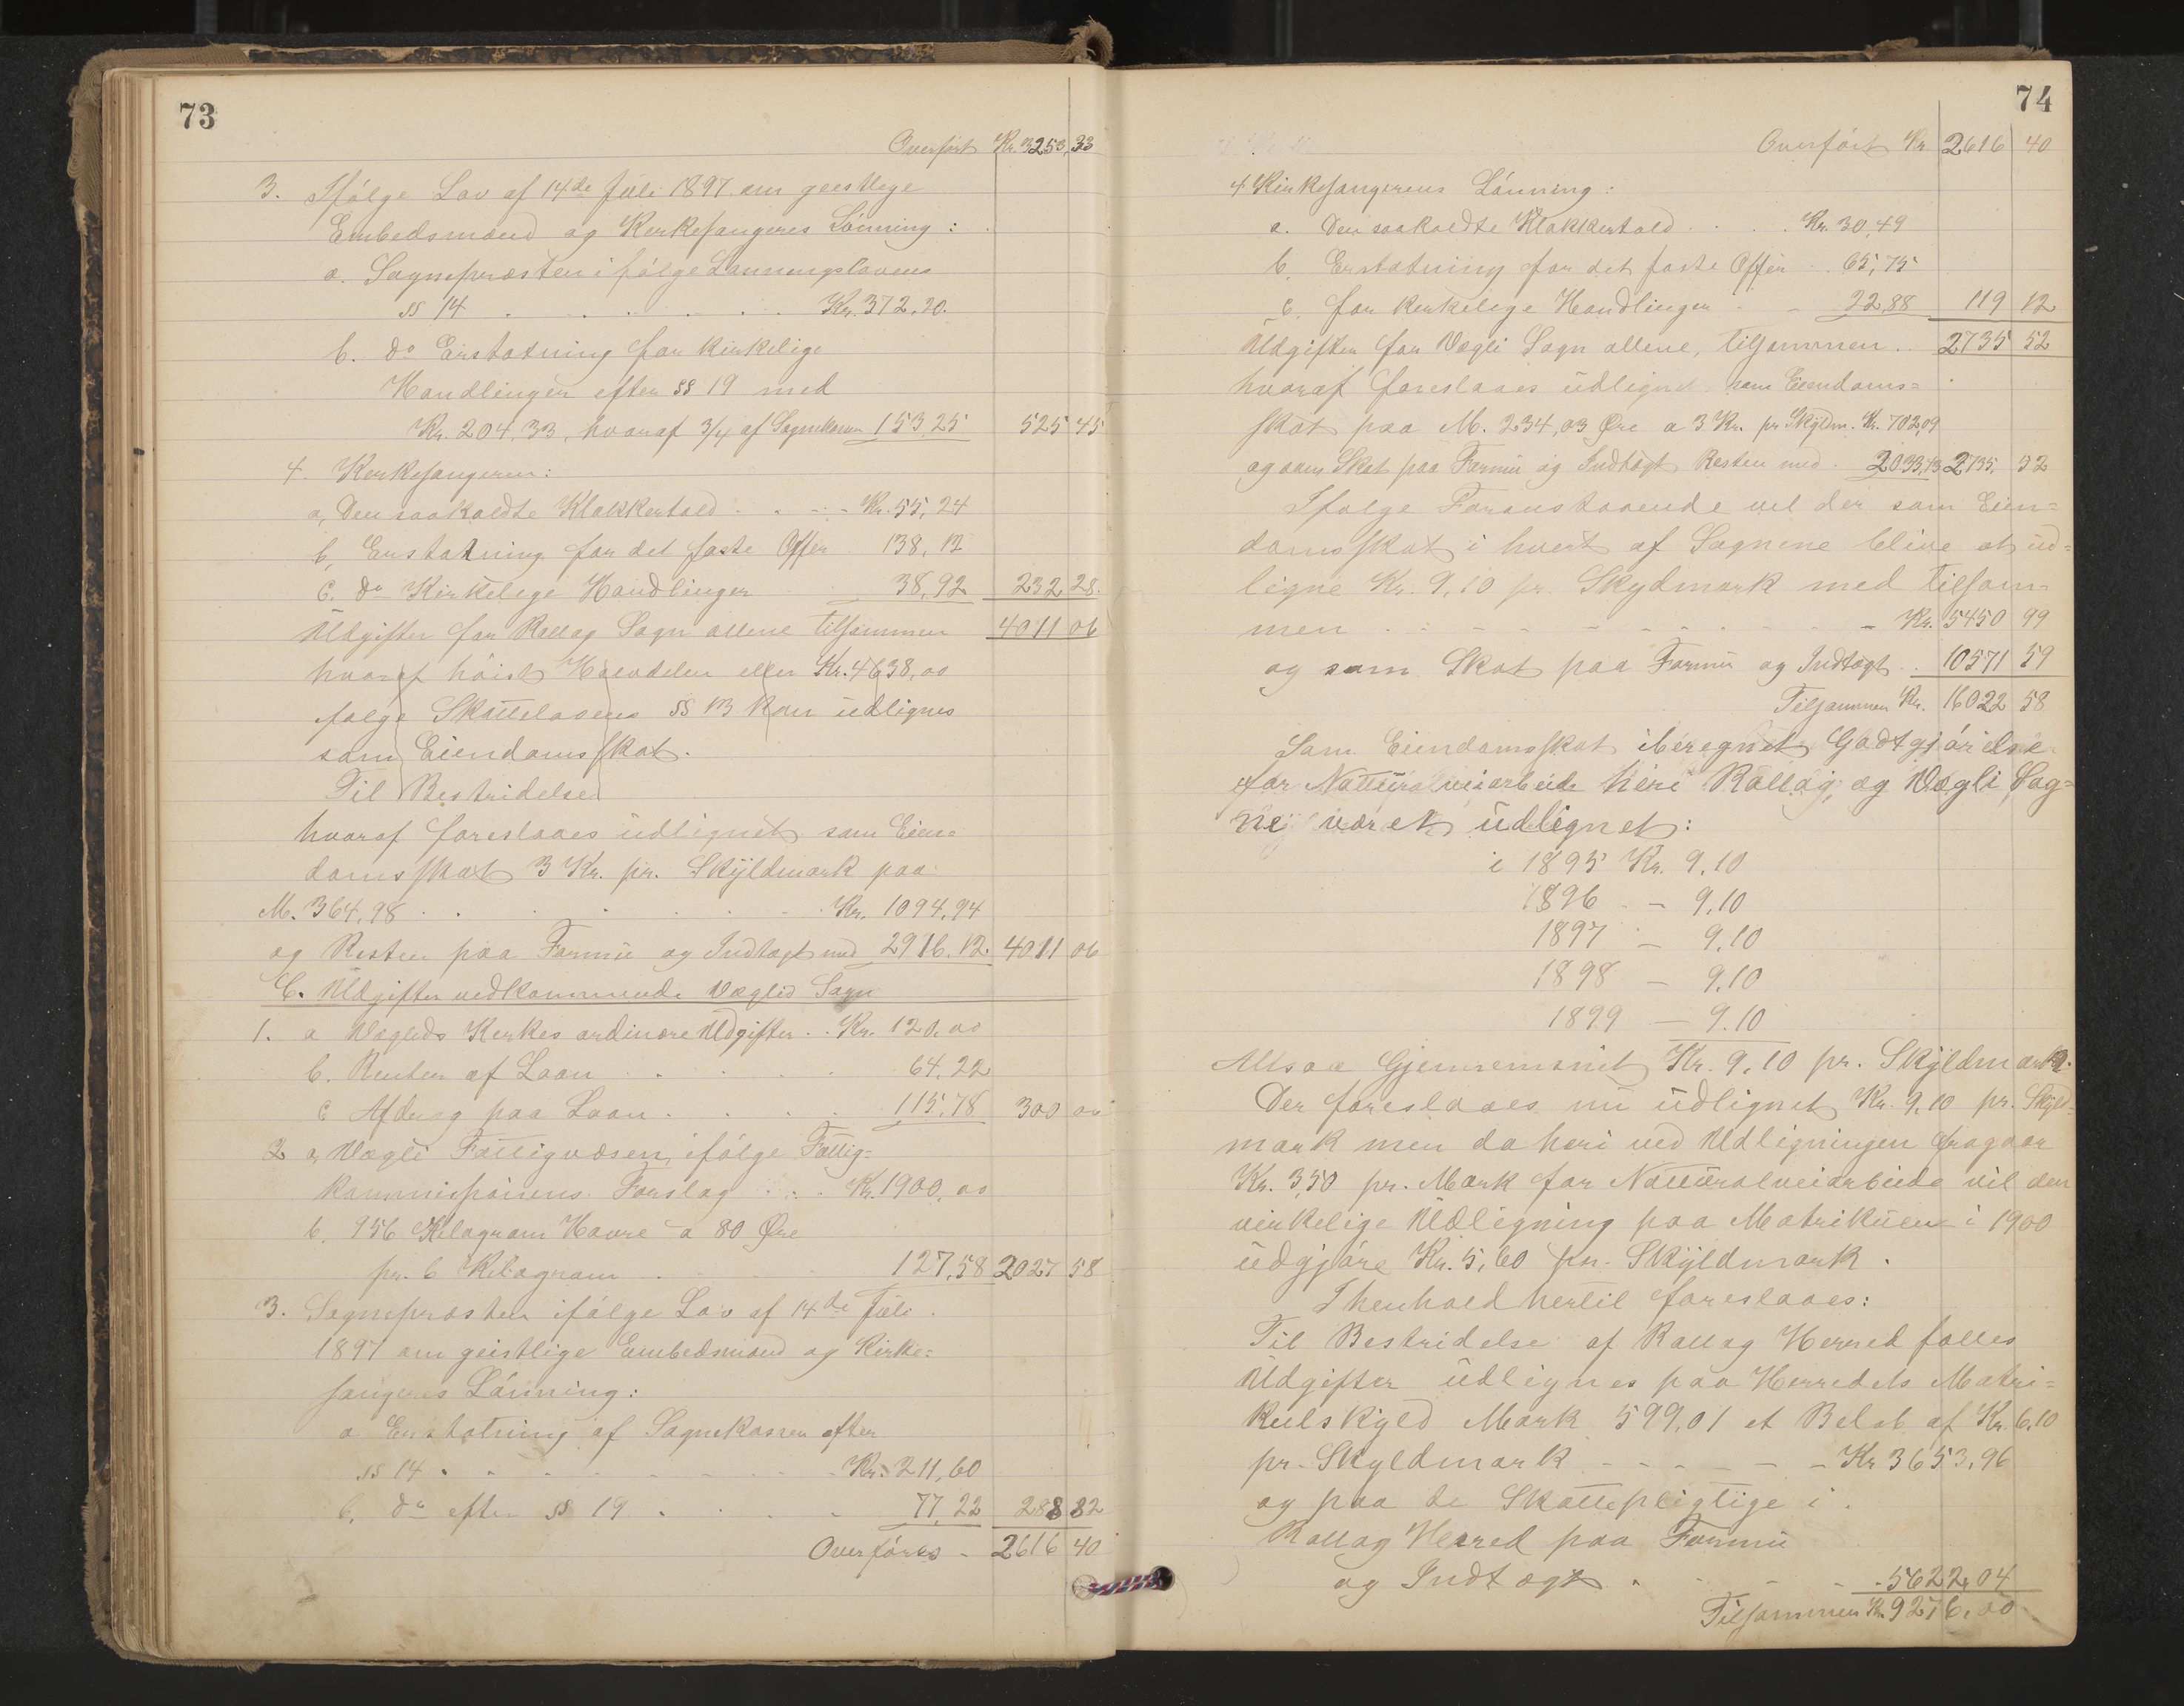 73
Overført Kr. 3253,33
3. Ifølge Lov af 14de Juli 1897 om geestlege
Embedsmænd og Kerkesangeres Lønning:
a. Sognepræsten i følge Lønningslovens
§§ 14 . . . . . . Kr. 372,20.
b. do Erstatning for kirkelige
Handlinger efter §§ 19 med
Kr. 204,33, hvoraf 3/4 af Sognekassen 153,25 525 45
4. Kerkesangeren:
a, Den saakaldte Klokkertold . . - - Kr. 55,24
b, Erstatning for det faste Offer 138,12
c. do Kirkelege Handlinger 38,92 232 28.
Udgifter for Rollag Sogn allene tilsammen 4011 06
hvoraf høist Halvdelen eller Kr. 4638,00
følge Skattelovens §§ 13 kan udlignes
som Eiendomsskat.
Til Bestridelse
hvoraf foreslaaes udlignet som Eien=
domsskat 3 Kr. pr. Skyldmark paa
M. 364,98 . . . . . . . Kr. 1094,94
og Resten paa Formue og Indtægt med 2916,12. 4011 06
C. Udgifter vedkommende Veglid Sogn
1. a Veglids Kerkes ordinære Udgifter . . Kr. 120,00
b. Renter af Laan . . . . . 64,22
c Afdrag paa Laan . . . . 115,78 300 00
2 a, Vegli Fattigvæsen, ifølge Fattig=
kommissionens Forslag . . . Kr. 1900,00
b. 956 Kilogram Havre a 80 Øre
pr. 6 Kilogram . . . 127,58 2027 58
3. Sognepræsten ifølge Lov af 14de Juli
1897 om geistlige Embedsmænd og Kirke=
sangeres Lønning:
a Erstatning af Sognekassen efter
§§ 14 . . - - - - - - Kr. 211,60
b. do efter §§ 19 . . . . 77,22 288 82
Overføres - 2616 40
74
Overført Kr 2616 40
4 Kirkesangerens Lønning:
a. Den saakaldte Klokkertold . . . . Kr. 30,49
b. Erstatning for det faste Offer . . 65,75
c. for kerkelege Handlinger - - 22,88 119 12
Udgifter for Vegli Sogn allene, tilsammen . . 2735 52
hvoraf foreslaaes udlignet som Eiendoms=
skat paa M. 234,03 Øre a 3 Kr. pr Skyldm. Kr. 702,09
og som Skat paa Formue og Indtægt Resten med . 2033,43 2735, 52
Ifølge Foranstaaende vel der som Eien=
domsskat i hvert af Sognene blive at ud=
ligne Kr. 9,10 pr. Skydmark med tilsam=
men . - - - - - - - - - Kr. 5450 99
og som Skat paa Formue og Indtægt . . 10571 59
Tilsammen Kr. 16022 58
Som Eiendomsskat iberegnet Godtgjørelse
for Natturalveiarbeide heri Rollag og Vegli Sog=
ne været udlignet:
i 1895 Kr. 9.10
1896 - - 9.10
1897 - 9.10
1898 - 9.10
1899 - 9.10
Altsaa Gjennemsnit Kr. 9,10 pr. Skyldmark.
Der foreslaaes nu udlignet Kr. 9,10 pr. Skyld=
mark men da heri ved Udligningen fragaar
Kr. 3,50 pr. Mark for Natturalveiarbeide vil den
virkelige Udligning paa Matrikulen i 1900
udgjøre Kr. 5,60 pr. Skyldmark.
I henhold hertil foreslaaes:
Til Bestridelse af Rollag Herred fælles
Udgifter udlignes paa Herredets Matri=
kulskyld Mark 599,01 et Beløb af Kr. 6,10
pr. Skyldmark - - - - - - Kr 3653,96
og paa de Skattepligtige i
Rollag Herred paa Formue
og Indtægt . - - - - 5622,04
Tilsammen Kr. 9276,00